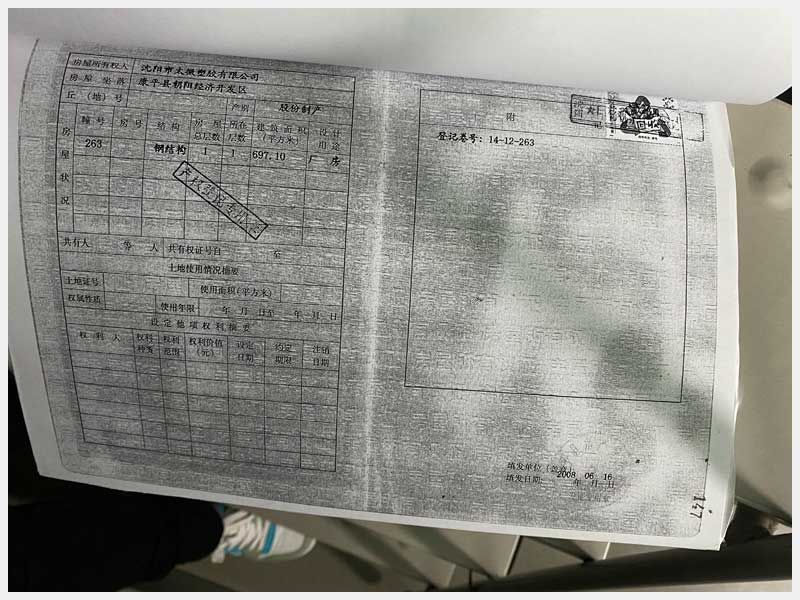 房屋所有权人 沈阳市太微塑胶有限公司
房屋坐落 康平县朝阳经济开发区
丘（地）号 产别 股份制产
房屋状况
幢号 房号 结构 房屋总层数 所在层数 建筑面积（平方米） 设计用途
263 钢结构 1 1 697.10 厂房
产权登记专用章
共有人 等 人 共有权证号自 至
土地使用情况摘要
土地证号 使用面积(平方米)
权属性质 使用年限 年 月 日至 年 月 日
设定他项权利摘要
权利人 权利种类 权利范围 权利价值（元） 设定日期 约定期限 注销日期
附 记
登记卷号：14-12-263
填发单位（盖章）
填发日期： 2008 06 16
年 月 日
147